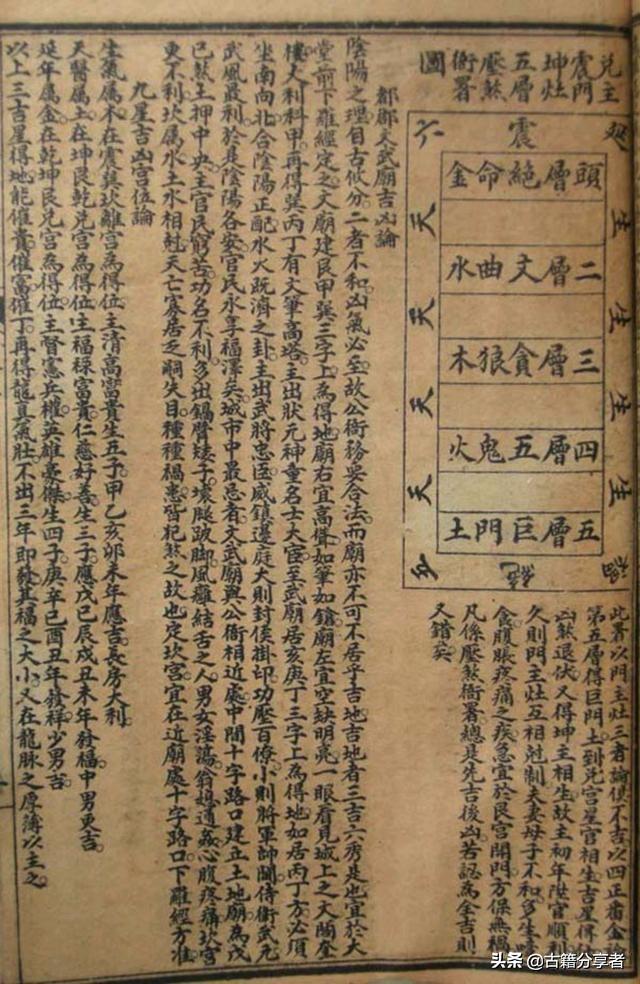 兌主
震門
坤灶
五層
壓煞
衙署
圖
震
頭層絕命金
二層文曲水
三層貪狼木
四層五鬼火
五層巨門土
生
生
生
生
六
天
天
天
天
此署以門主灶三者論俱不吉以四正番金論
第五層得巨門土到兌宮星宮相生吉星得位
凶煞退伏又得坤主相生故主初年陞官順利
久則門主灶互相尅制夫妻母子不和多生
食腹脹疼痛之疾急宜於艮宮開門方保無禍
凡係壓煞衙署總是先吉後凶若認為全吉則
又錯矣
都郡文武廟吉凶論
陰陽之理自古攸分二者不和凶氣必至故公衙務要合法而廟亦不可不居乎吉地吉地者三吉六秀是也宜於大
堂前下羅經定之文廟建艮甲巽三字上為得地廟右宜高聳如筆如鎗廟左宜空缺明亮一眼看見城上之文閣奎
樓大利科甲再得巽丙丁有文筆高塔主出狀元神童名士大宦至武廟居亥庚丁三字上為得地如居丙丁方必須
坐南向北合陰陽正配水火既濟之卦主出武將忠臣威鎮邊庭大則封侯掛印功壓百僚小則將軍帥閫侍衛武元
武風最利於是陰陽各安官民永享福澤矣城市中最忌者文武廟與公衙相近處中間十字路口建立土地廟為戊
己煞土押中央主官民窮苦功名不利多出鍋臂矮子壞腿跛脚風癱結舌之人男女淫蕩翁媳通姦心腹疼痛坎宮
更不利坎屬水土水相尅天亡寡居乏嗣失目種種禍患皆犯煞之故也定坎宮宜在近廟處十字路口下羅經方准
九星吉凶宮位論
生氣屬木在震巽坎離宮為得位主清高富貴生五子甲乙亥卯未年應吉長房大利
天醫屬土在坤艮乾兌宮為得位主福祿富貴仁慈好善生三子應戊己辰戌丑未年發福中男更吉
延年屬金在乾坤艮兌宮為得位主督憲兵權英雄豪傑生四子庚辛己酉丑年發祥少男吉
以上三吉星得地能催貴催富催丁再得龍真氣壯不出三年即發其福之大小又在龍脈之厚薄以主之
头条 @古籍分享者